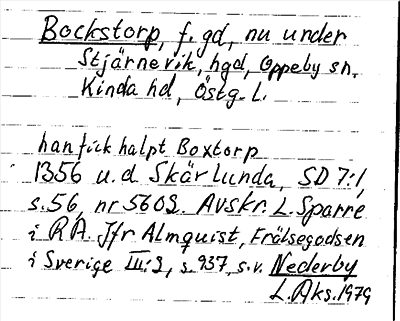 Bockstorp, f. gd, nu under
Stjärnevik, hgd, Oppeby sn,
Kinda hd, Östg. L.
han fick halpt Boxtorp
1356 u.d. Skärlunda, SD 7:1,
s. 56, nr 5602. Avskr. L. Sparre
i RA. Jfr Almquist, Frälsegodsen
i Sverige III:2, s. 937, s.v. Nederby
L.Aks. 1979